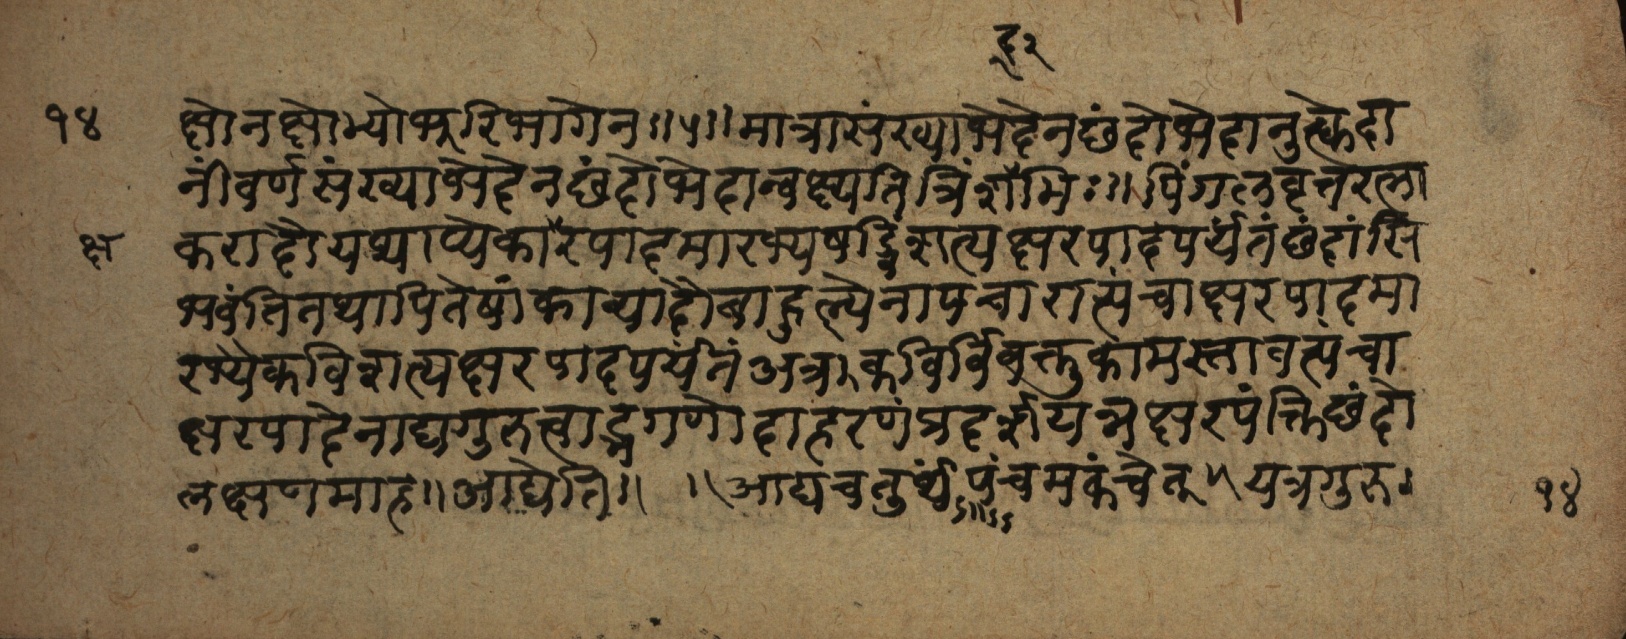 ह२
१४ क्षोनक्षोभ्योभूरिभागेन॥५॥मात्रासंख्याभेदेनछंदोभेदानुत्क्वेदा
नींवर्णसंख्याभेदेनछंदोभेदान्वक्ष्यतित्रिंशोभिः॥पिंगलवृत्तरत्ना
क्ष करादौयद्यप्येकारैपादमारभ्यषड्विंशत्यक्षरपादपर्यंतंछंदांसि
भवंतितथापितेषांकाव्यादौबाहुल्येनापचारात्पंचाक्षरपादमा
रभ्येकविंशत्यक्षरपादपर्यंतंअत्रकविर्विवक्तुकामस्तावत्पंचा
क्षरपादेनाद्यगुरुत्वाद्भगणोदाहरणंप्रदर्शयन्नक्षरपंक्तिछंदो
लक्षणमाह॥आद्येति॥ ॥आद्यचतुर्थंपंचमकंचेत्॥यत्रगुरु।
ऽ॥ऽऽ
१४